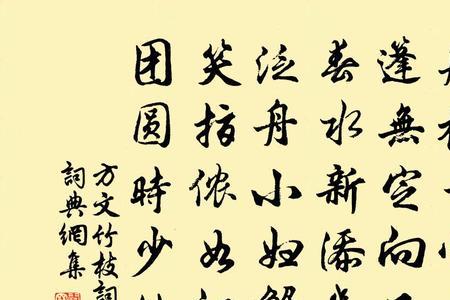 蓬無定向
春水新添
泛舟小妞解
笑指侬如
团圆時少
方文竹枝詞
詞典網集